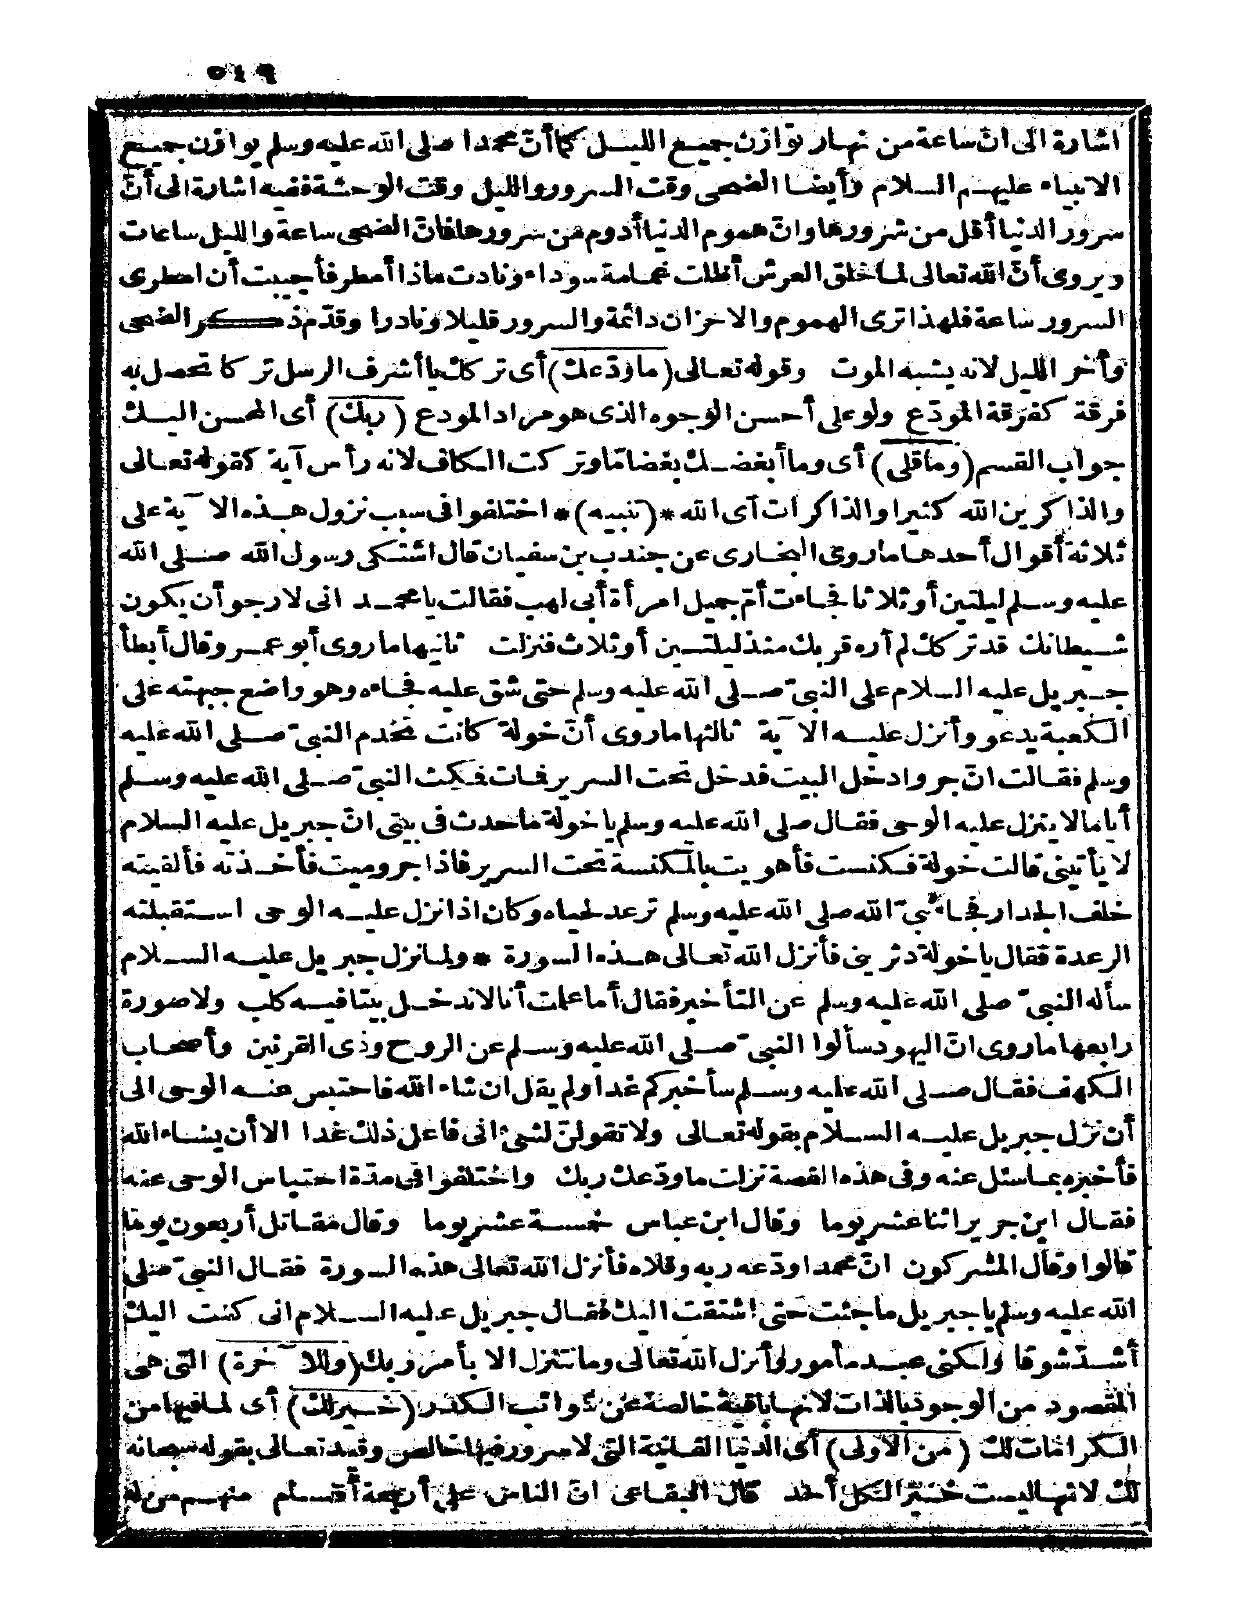 ٥١٩
اشارة الى انّ ساعة من نهار توازن جميع الليل كما أنّ محمدا صلى الله عليه وسلم يوازن جميع
الانبياء عليهم السلام وأيضا الضحى وقت السرور والليل وقت الوحشة ففيه اشارة الى أنّ
سرور الدنيا أقل من شرورها وانّ هموم الدنيا أدوم من سرورها فانّ الضحى ساعة والليل ساعات
ويروى أنّ الله تعالى لما خلق العرش أظلت غمامة سوداء ونادت ماذا أمطر فأجيبت أن امطرى
السرور ساعة فلهذا ترى الهموم والاحزان دائمة والسرور قليلا ونادرا وقدّم ذكر الضحى
وأخر الليل لانه يشبه الموت وقوله تعالى (ما ودّعك) أى تركك يا أشرف الرسل تركا تحصل به
فرقة كفرقة المودّع ولو على أحسن الوجوه الذى هو مراد المودع (ربك) أى المحسن اليك
جواب القسم (وما قلى) أى وما أبغضك بغضا مّا وتركت الكاف لانه رأس آية كقوله تعالى
والذاكرين الله كثيرا والذاكرات أى الله *(تنبيه)* اختلفوا فى سبب نزول هذه الآية على
ثلاثة أقوال أحدها ما روى البخارى عن جندب بن سفيان قال اشتكى رسول الله صلى الله
عليه وسلم ليلتين أو ثلاثا فجاءت أمّ جميل امرأة أبى لهب فقالت يا محمد انى لارجو أن يكون
شيطانك قد تركك لم أره قربك منذ ليلتين أو ثلاث فنزلت ثانيها ما روى أبو عمرو قال أبطأ
جبريل عليه السلام على النبىّ صلى الله عليه وسلم حتى شق عليه فجاءه وهو واضع جبهته على
الكعبة يدعو وأنزل عليه الآية ثالثها ما روى أنّ خولة كانت تخدم النبىّ صلى الله عليه
وسلم فقالت انّ جروا دخل البيت فدخل تحت السرير فمات فمكث النبىّ صلى الله عليه وسلم
أياما لا ينزل عليه الوحى فقال صلى الله عليه وسلم يا خولة ما حدث فى بيتى انّ جبريل عليه السلام
لا يأتينى قالت خولة فكنست فأهويت بالمكنسة تحت السرير فاذا جرو ميت فأخذته فألقيته
خلف الجدار فجاء نبىّ الله صلى الله عليه وسلم ترعد لحياه وكان اذا نزل عليه الوحى استقبلته
الرعدة فقال يا خولة دثرينى فأنزل الله تعالى هذه السورة * ولما نزل جبريل عليه السلام
سأله النبىّ صلى الله عليه وسلم عن التأخير فقال أما علمت أنا لا ندخل بيتا فيه كلب ولا صورة
رابعها ما روى انّ اليهود سألوا النبىّ صلى الله عليه وسلم عن الروح وذى القرنين وأصحاب
الكهف فقال صلى الله عليه وسلم سأخبركم غدا ولم يقل ان شاء الله فاحتبس عنه الوحى الى
أن نزل جبريل عليه السلام بقوله تعالى ولا تقولنّ لشئ انى فاعل ذلك غدا الا أن يشاء الله
فأخبره بما سئل عنه وفى هذه القصة نزلت ما ودّعك ربك واختلفوا فى مدّة احتباس الوحى عنه
فقال ابن جريرا ثنا عشر يوما وقال ابن عباس خمسة عشر يوما وقال مقاتل أربعون يوما
قالوا وقال المشركون انّ محمدا ودّعه ربه وقلاه فأنزل الله تعالى هذه السورة فقال النبىّ صلى
الله عليه وسلم يا جبريل ما جئت حتى اشتقت اليك فقال جبريل عليه السلام انى كنت اليك
أشدّ شوقا ولكنى عبد مأمور وأنزل الله تعالى وما نتنزل الا بأمر ربك (وللآخرة) التى هى
المقصود من الوجود بالذات لانها باقية خالصة عن شوائب الكدر (خير لك) أى لما فيها من
الكرامات لك (من الاولى) أى الدنيا الفانية التى لا سرور فيها خالص وقيد تعالى بقوله سبحانه
لك لانها ليست خيرا لكل أحد قال البقاعى انّ الناس على أربعة أقسام منهم من له